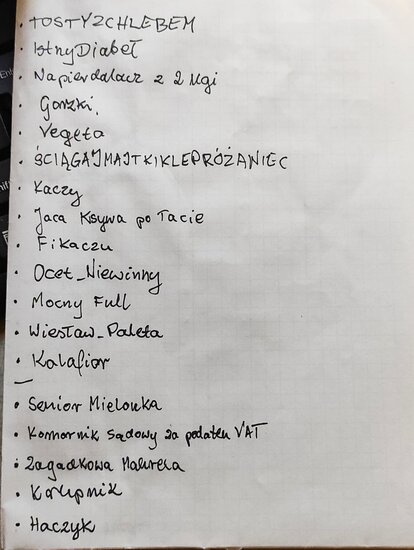 · TOSTYZCHLEBEM
· IstnyDiabeł
· Napierdalacz z 2 Mgi
· Gorzki.
· Vegeta
· ŚCIĄGAJMAJTKIKLEPRÓŻANIEC
· Kaczy
· Jaca Ksywa po Tacie
· Fikaczu
· Ocet_Niewinny
· Mocny Full
· Wiesław_Paleta
· Kalafior
· Senior Mielonka
· Komornik Sądowy za podatek VAT
· Zagadkowa Makrela
· Karlupnik
· Haczyk